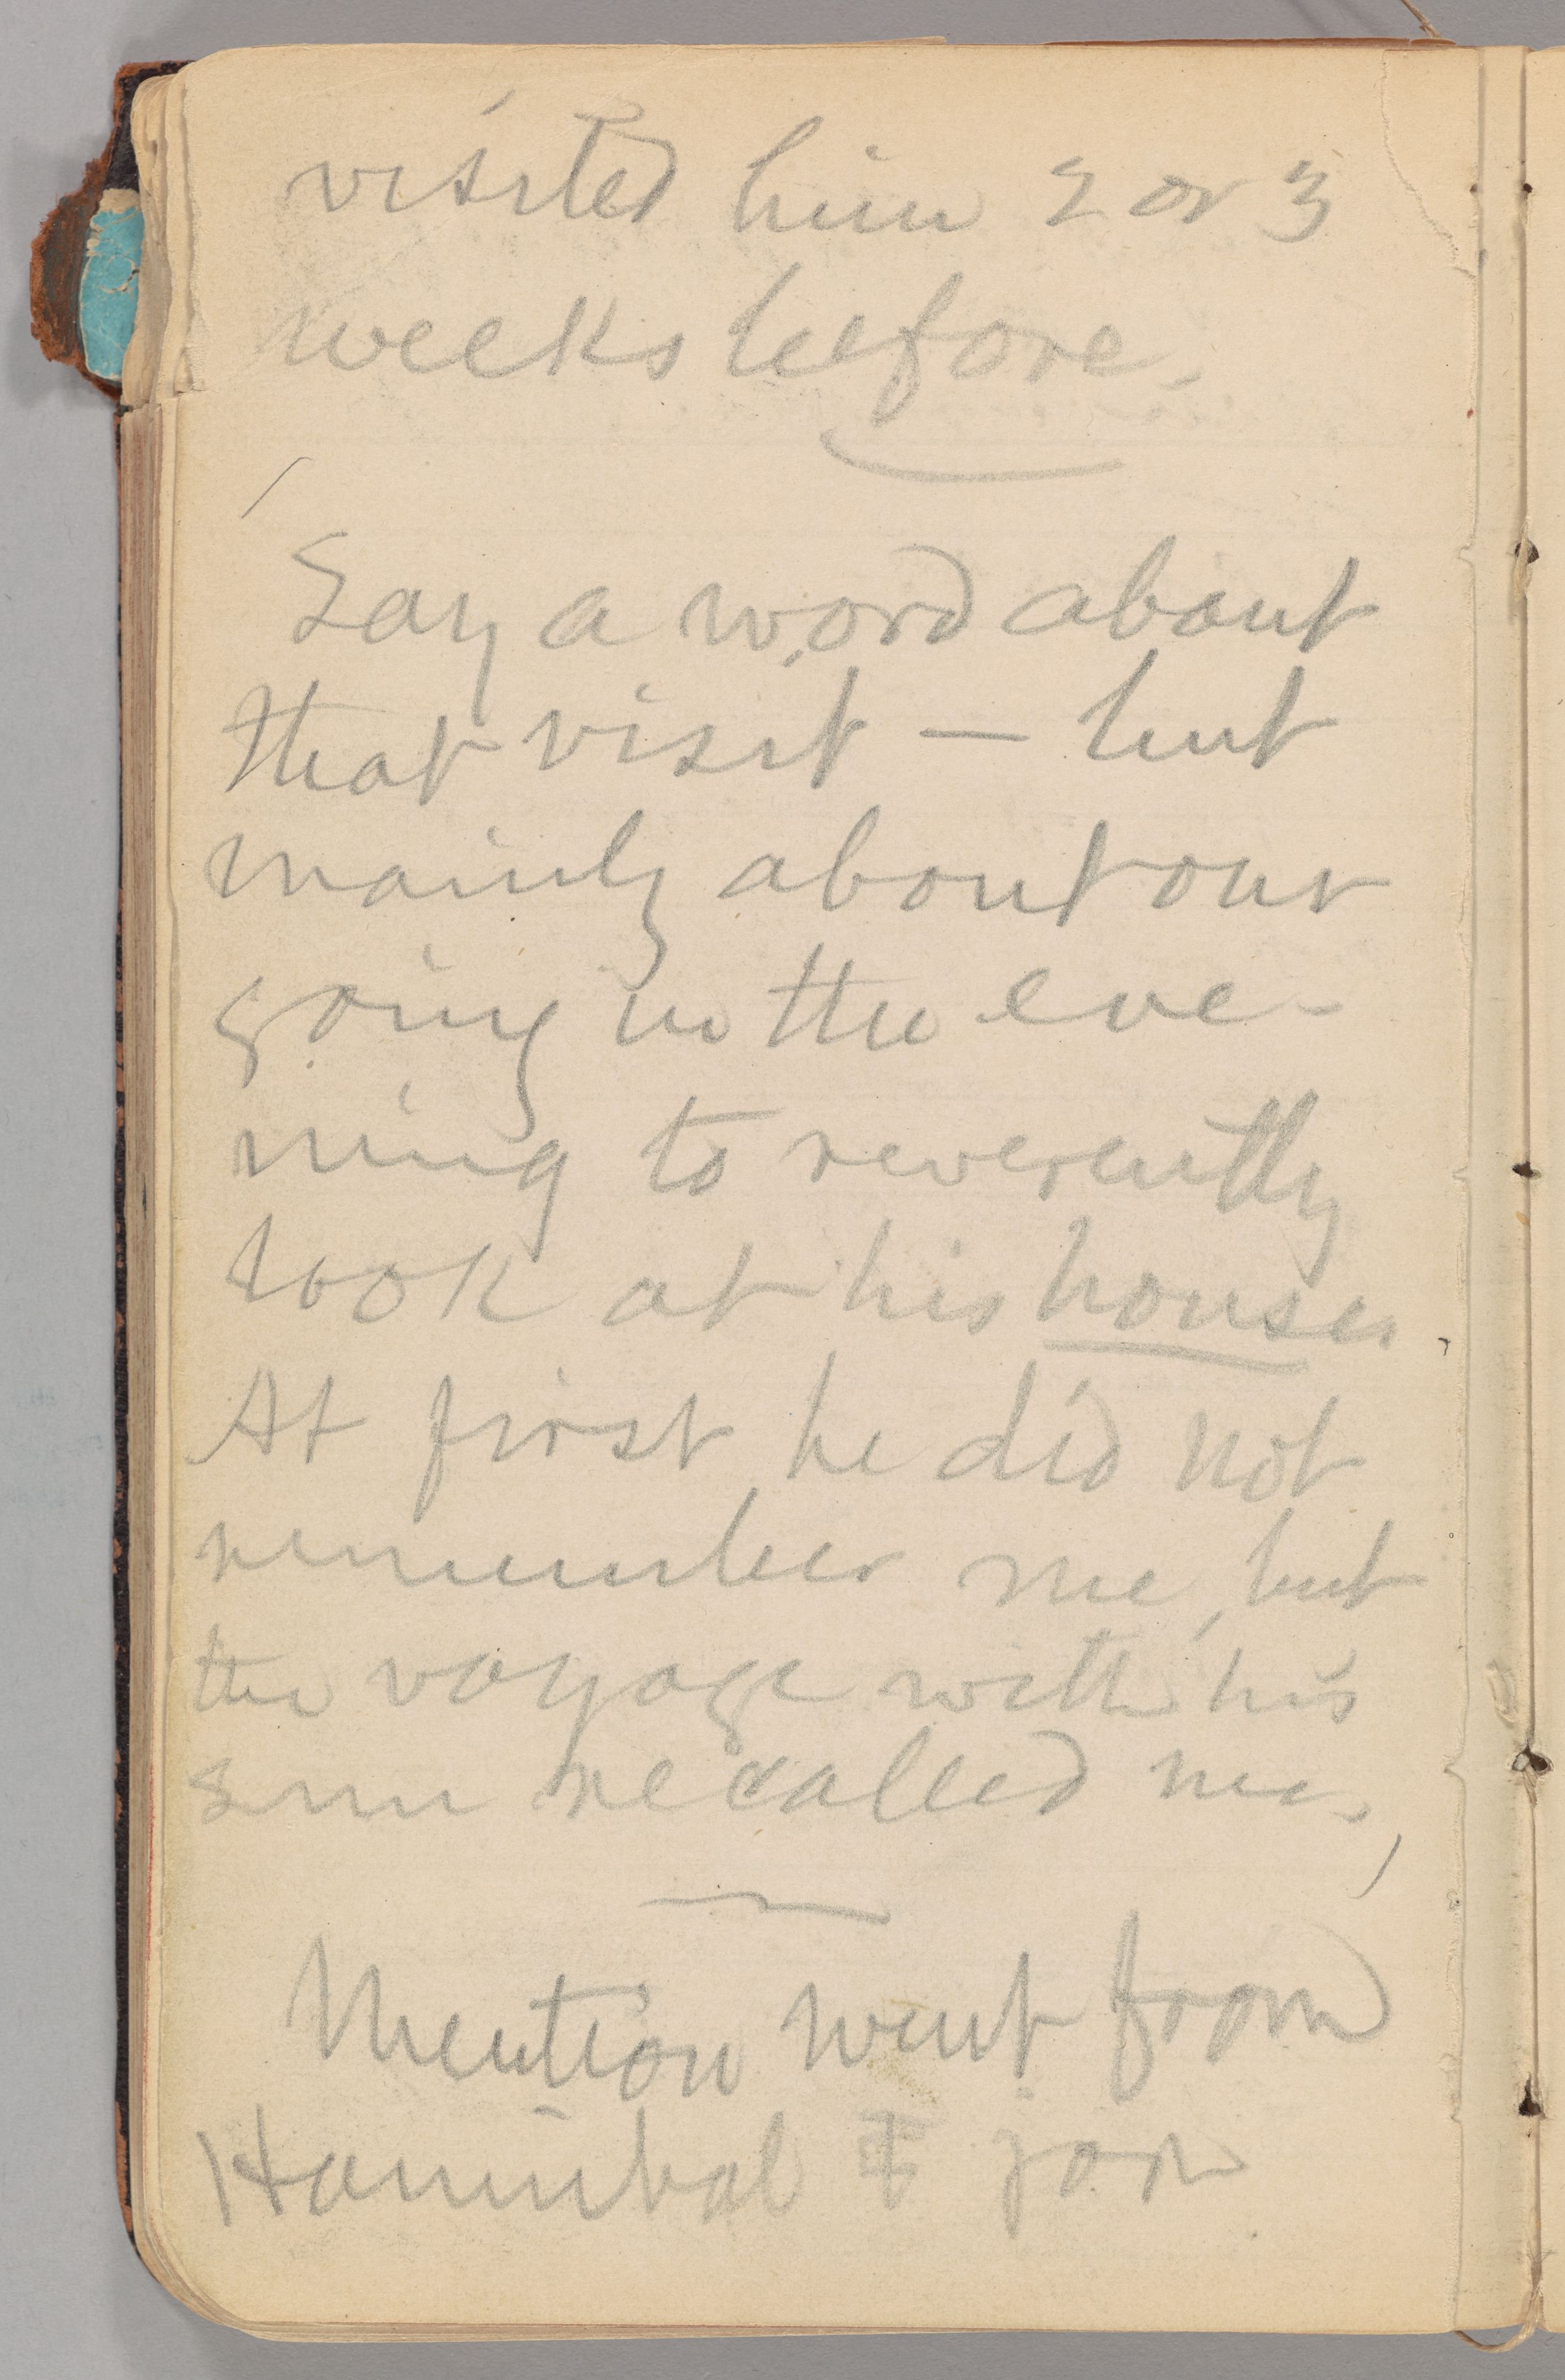 visited him 2 or 3
weeks before.
Say a word about
that visit — but
mainly about our
going in the eve-
ning to reverently
look at his house.
At first he did not
remember me, but
the voyage with his
son recalled me.
Mention went from
Hannibal &